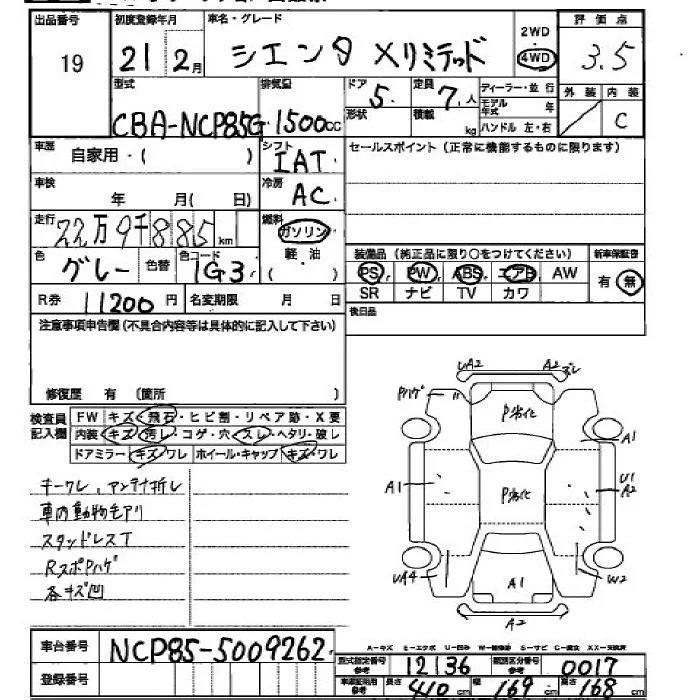 出品番号 初度登録年月 車名・グレード 評価点
19 21年2月 シエンタ Xリミテッド 2WD 4WD 3.5
型式 排気量 ドア 定員 ディーラー・並行 外装 内装
CBA-NCP85G 1500cc 5 7人 モデル年式 年 C
形状 積載 kg ハンドル 左・右
車歴 自家用・( ) シフト IAT セールスポイント(正常に機能するものに限ります)
車検 年 月( 日) 冷房 AC
走行 22万9千885km 燃料 ガソリン
軽・油
( )
色 グレー 色替 色コード 1G3 装備品(純正品に限り○をつけてください) 新車保証書
PS PW ABS エアB AW 有・無
R券 11200円 名変期限 月 日 SR ナビ TV カワ
注意事項申告欄(不具合内容等は具体的に記入して下さい) 後日品
修復歴 有(箇所 )
検査員記入欄 FW キズ・飛石・ヒビ割・リペア跡・X要
内装 キズ・汚レ・コゲ・穴・スレ・ヘタリ・破レ
ドアミラー キズ・ワレ ホイール・キャップ キズ・ワレ
UA2 A2 ズレ
Pハゲ P劣化
A1
A1 P劣化 U1
A2
UA4 A1 W2
A2
キークレ、アンテナ折レ
車内動物毛アリ
スタッドレスT
RスポPハゲ
各キズ凹
車台番号 NCP85-5009262
登録番号
A-キズ E-エクボ U-凹み W-補修跡 S-サビ C-腐食 XX-交換済
型式指定番号 参考 12136 類別区分番号 参考 0017
車車証明用 参考 長さ 410cm 幅 169cm 高さ 168cm